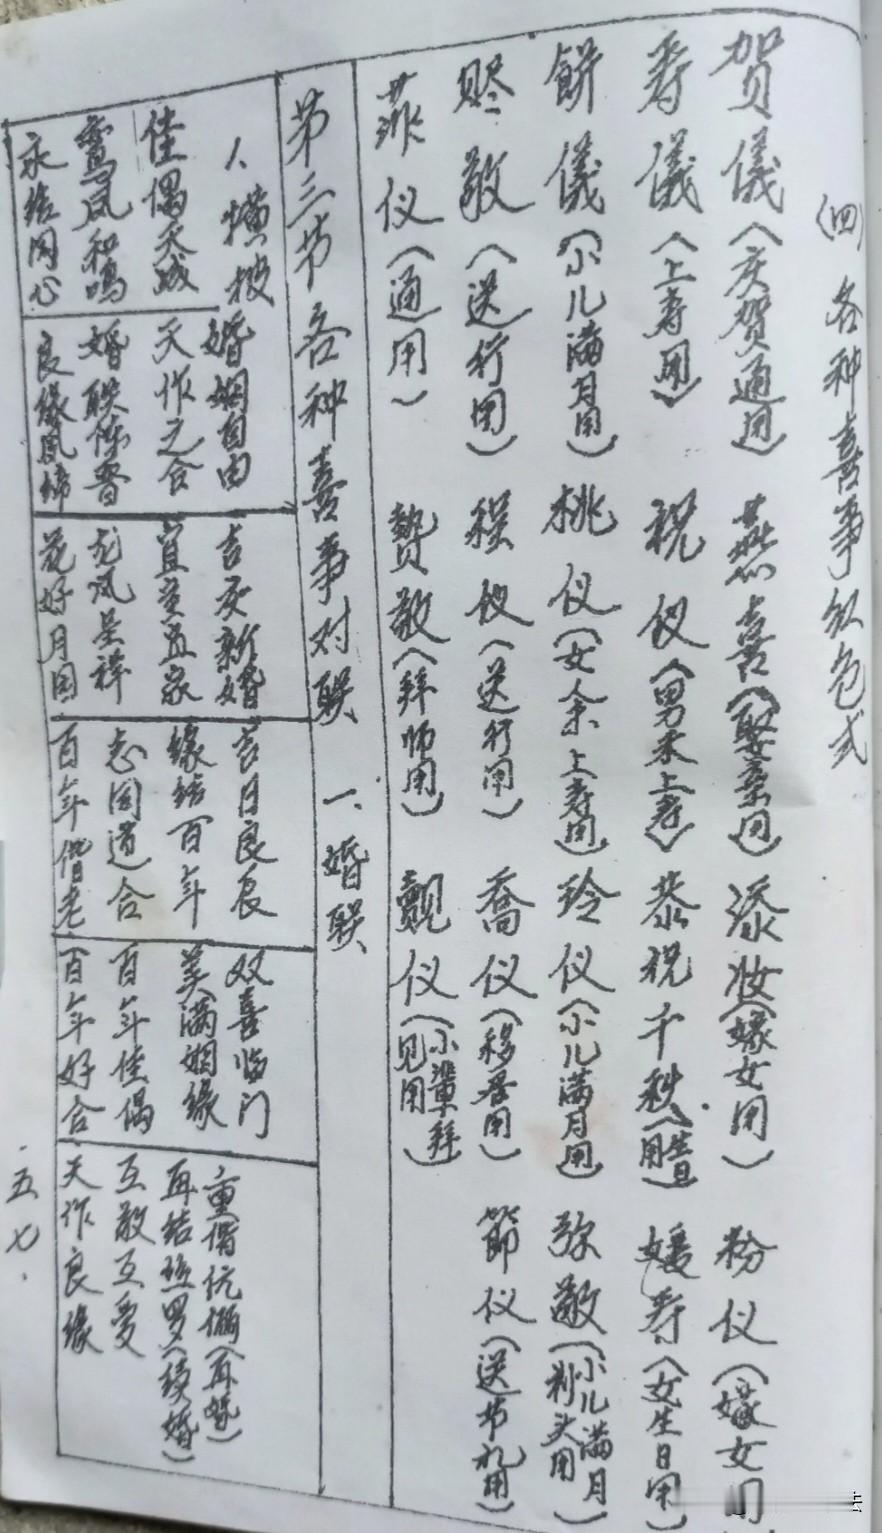 (四)各种喜事红包式
贺儀(庆贺通用) 燕喜(娶亲用) 添妆(嫁女用) 粉仪(嫁女用
寿儀(上寿用) 祝仪(男未上寿) 恭祝千秋(生日用) 嫒寿(女生日用)
餅儀(小儿满月用) 桃仪(女未上寿用) 玲仪(小儿满月用) 弥敬(小儿满月剃头用)
赆敬(送行用) 程仪(送行用) 喬仪(移居用) 節仪(送节礼用)
菲仪(通用) 贽敬(拜师用) 觀仪(小輩拜见用)
第三节各种喜事对联 一、婚联
1.横披
佳偶天成
鸾凤和鸣
永结同心
婚姻自由
天作之合
婚联陈晋
良缘夙缔
吉庆新婚
宜室宜家
龙凤呈祥
花好月圆
吉日良辰
缘结百年
志同道合
百年偕老
双喜临门
美满姻缘
百年佳偶
百年好合
重偕伉俪(再婚)
再结丝罗(续婚)
互敬互爱
天作良缘
·五七·